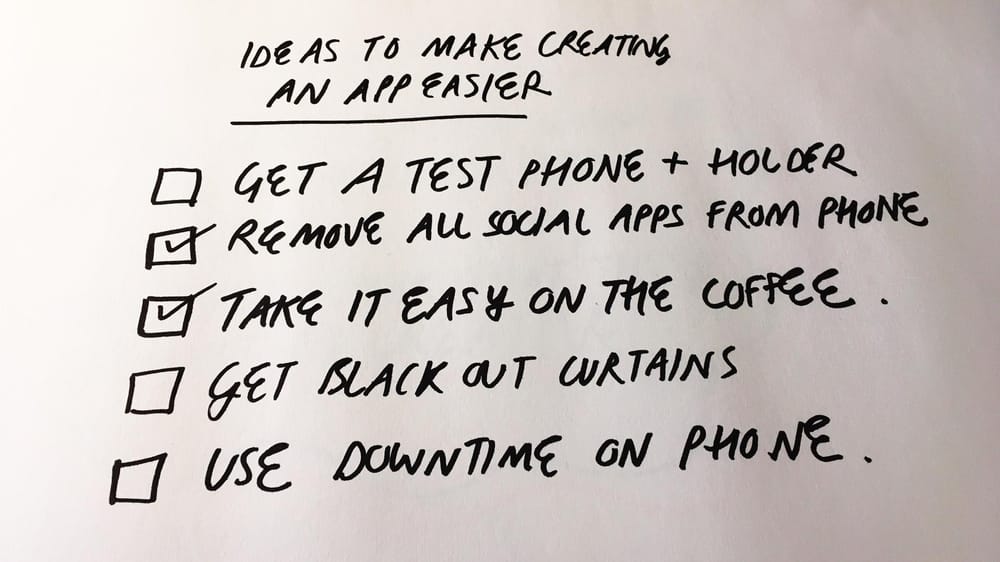 IDEAS TO MAKE CREATING
AN APP EASIER
GET A TEST PHONE + HOLDER
REMOVE ALL SOCIAL APPS FROM PHONE
TAKE IT EASY ON THE COFFEE.
GET BLACK OUT CURTAINS
USE DOWNTIME ON PHONE.